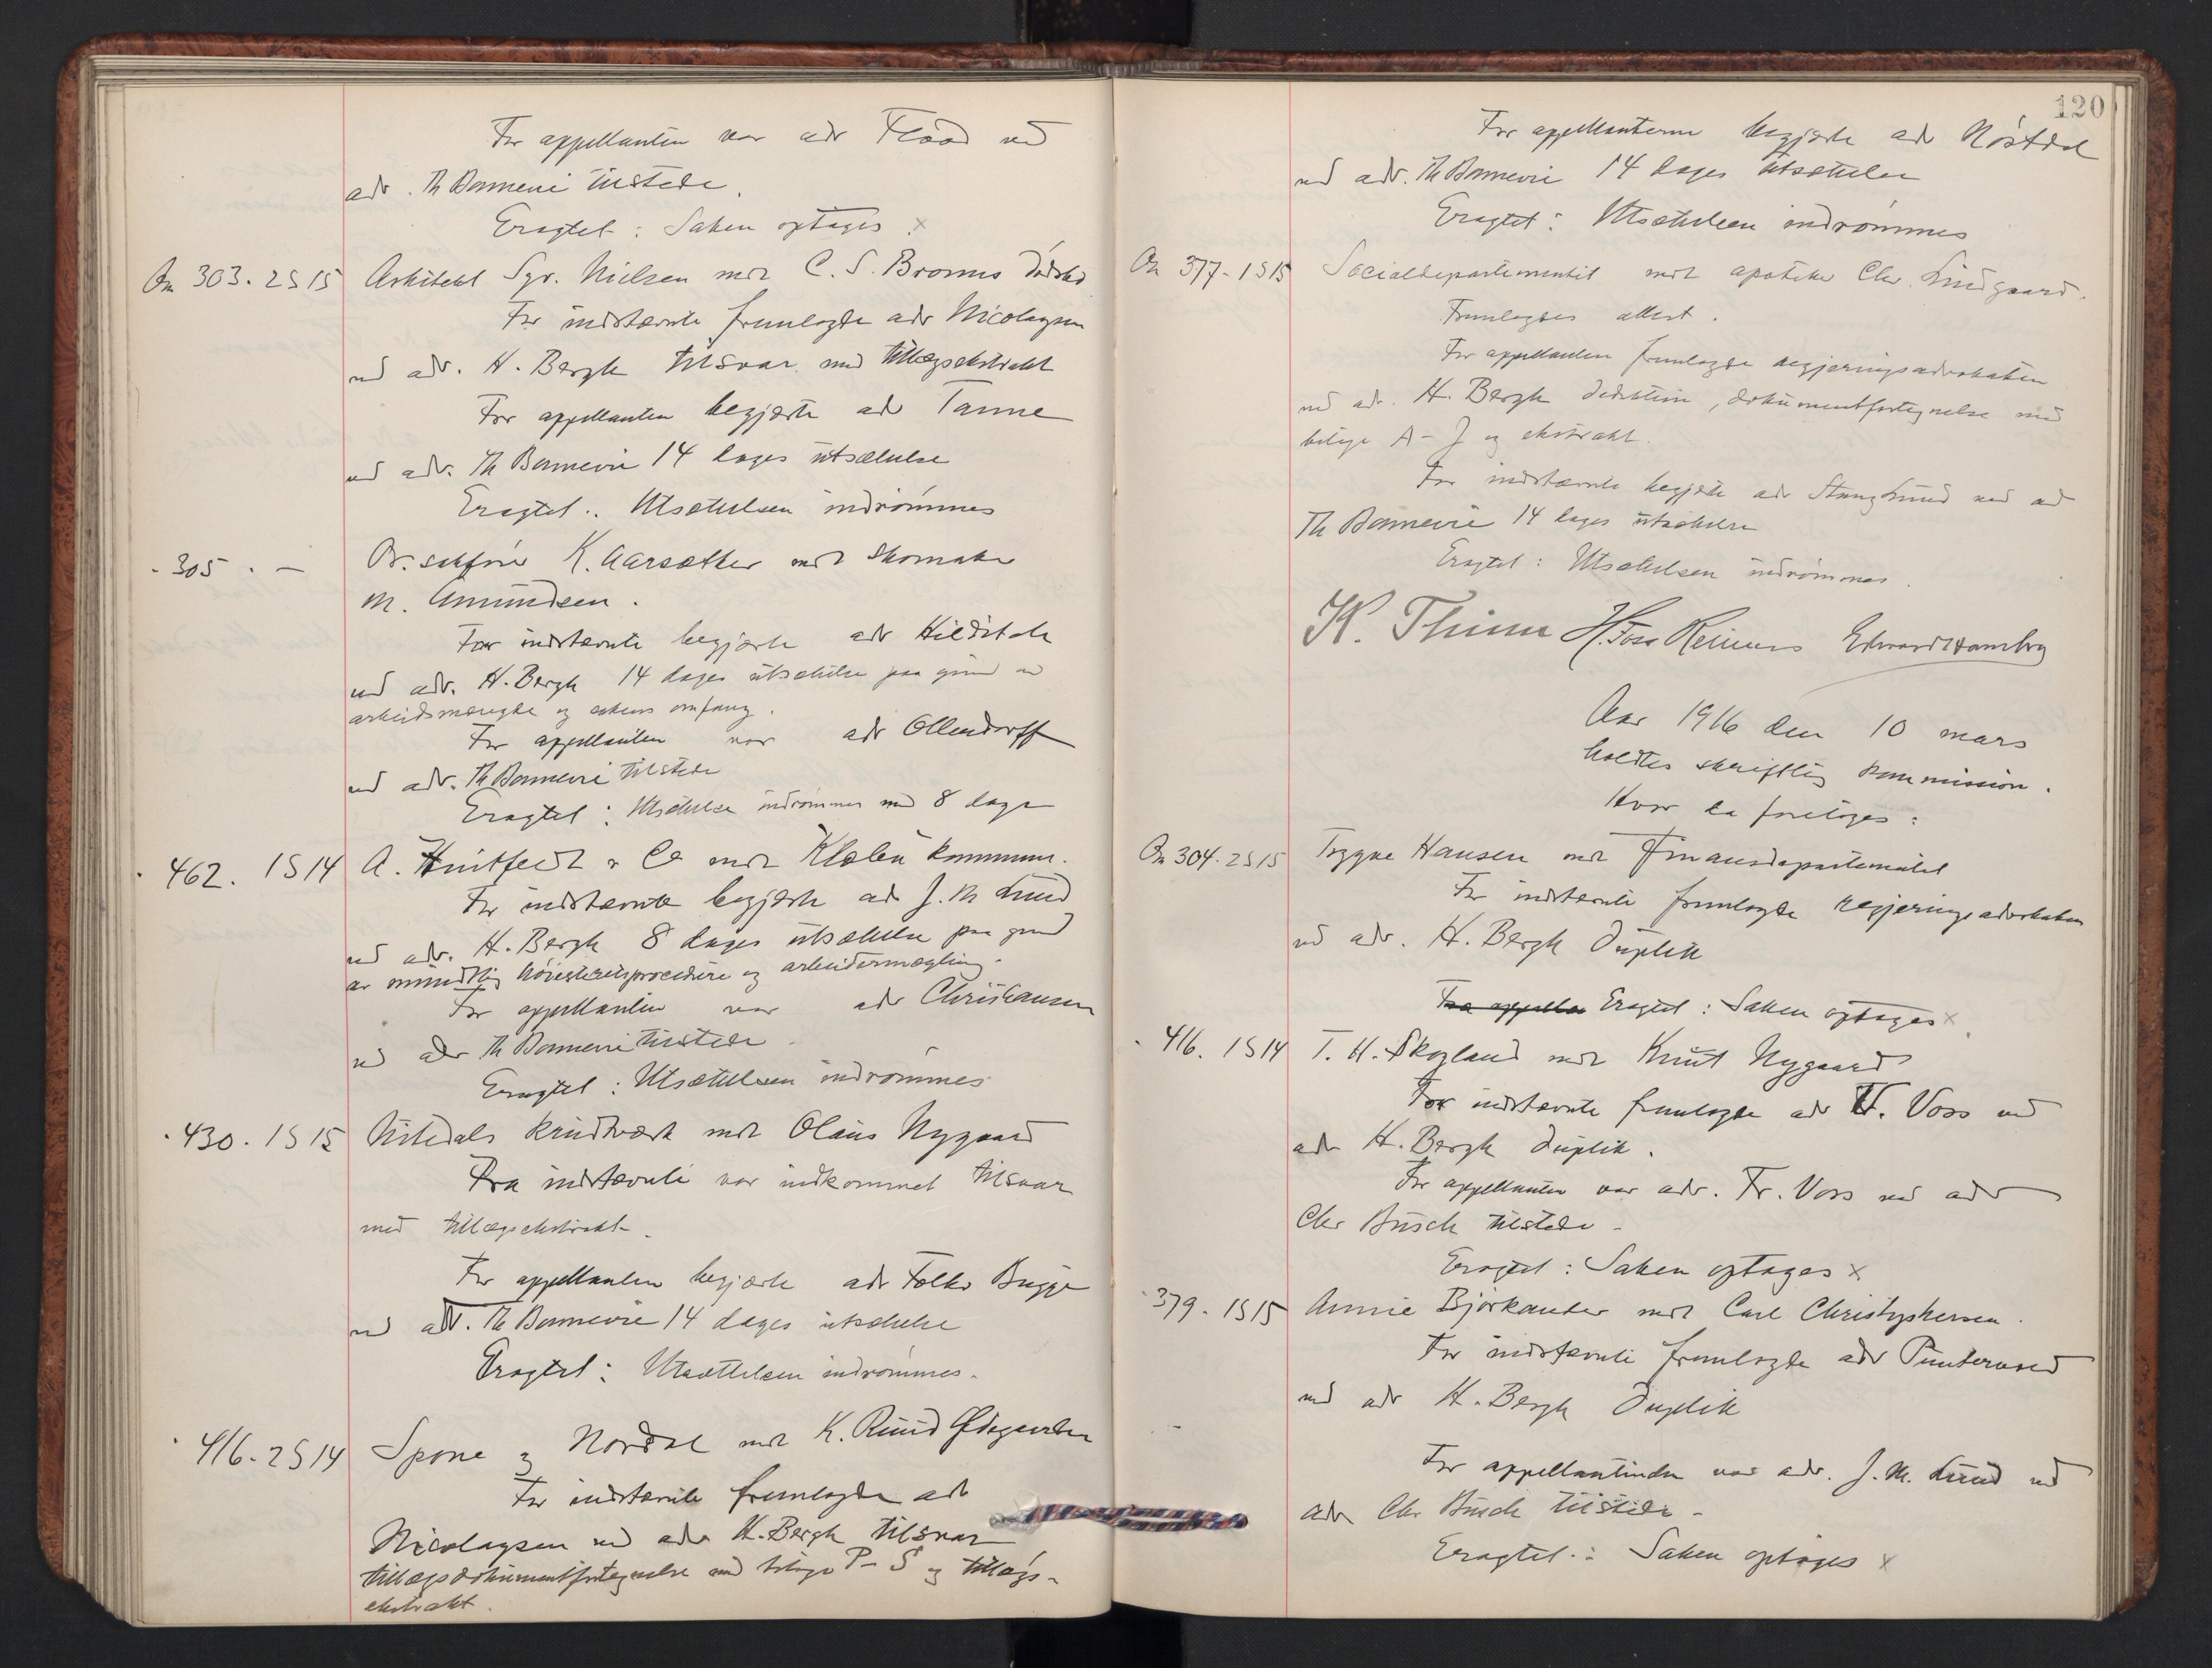 For appellanten var adv Flood ved
adv. Th Bonnevie tilstede.
Eragtet: Saken optages x
On 303. 2S15 Arkitekt Sgr. Nielsen mot C. S. Bromis dødsbo
For indstævnte fremlagde adv Nicolaysen
ved adv. H. Bergh tilsvar med tillægsekstrakt
For appellanten begjærte adv Tanne
ved adv. Th Bonnevie 14 dages utsættelse
Eragtet: Utsættelsen indrømmes
- 305 . — Or. sakfører K. Aarsæther mot skomaker
M. Amundsen.
For indstævnte begjærte adv Hilditch
ved adv. H. Bergh 14 dages utsættelse paa grund av
arbeidsmængde og sakens omfang.
For appellanten var adv Ollendorff
ved adv. Th Bonnevie tilstede
Eragtet: Utsættelse indrømmes med 8 dage
- 462. 1S14 A. Huitfeldt & Co mot Klæbu kommune.
For indstævnte begjærte adv J. M. Lund
ved adv. H. Bergh 8 dages utsættelse paa grund
av mundtlig høiesteretsprocedure og arbeidsmægling.
For appellanten var adv Christiansen
ved adv Th Bonnevie tilstede.
Eragtet: Utsættelsen indrømmes
- 430. 1S15 Nitedals Krudtværk mot Olaus Nygaard
Fra indstævnte var indkommet tilsvar
med tillægsekstrakt.
For appellanten begjærte adv Falko Bugge
ved adv. Th Bonnevie 14 dages utsættelse
Eragtet: Utsættelsen indrømmes.
- 416. 2S14 Spone og Nordal mot K. Ruud Ødegaarden
For indstævnte fremlagde adv
Nicolaysen ved adv H. Bergh tilsvar
tillægsdokumentfortegnelse med bilage P-S og tillægs-
ekstrakt.
120
For appellanterne begjærte adv Nöstdal
ved adv. Th Bonnevie 14 dages utsættelse
Eragtet: Utsættelsen indrømmes
On 377-1S15 Socialdepartementet mot apoteker Chr. Lindgaard.
Fremlagdes attest.
For appellanten fremlagde regjeringsadvokaten
ved adv. H. Bergh deduktion, dokumentfortegnelse med
bilage A-J og ekstrakt.
For indstævnte begjærte adv Stang Lund ved adv
Th Bonnevie 14 dages utsættelse
Eragtet: Utsættelsen indrømmes.
K. Thinn H. Foss Reimers Edvard Hambro
Aar 1916 den 10 mars
holdtes skriftlig kommission.
Hvor da foretages:
On 304. 2S15 Trygve Hansen mot Finansdepartementet
For indstævnte fremlagde regjeringsadvokaten
ved adv. H. Bergh Duplik
Fra appellan Eragtet: Saken optages x
- 416. 1S14 T. H. Skogland mot Knut Nygaard
For indstævnte fremlagde adv H. Voss ved
adv H. Bergh duplik.
For appellanten var adv. Fr. Voss ved adv
Chr Busch tilstede -
Eragtet: Saken optages x
- 379. 1S15 Annie Björkander mot Carl Christophersen.
For indstævnte fremlagde adv Puntervold
ved adv H. Bergh Duplik
For appellantinden var adv. J. M. Lund ved
adv Chr Busch tilstede -
Eragtet: Saken optages x